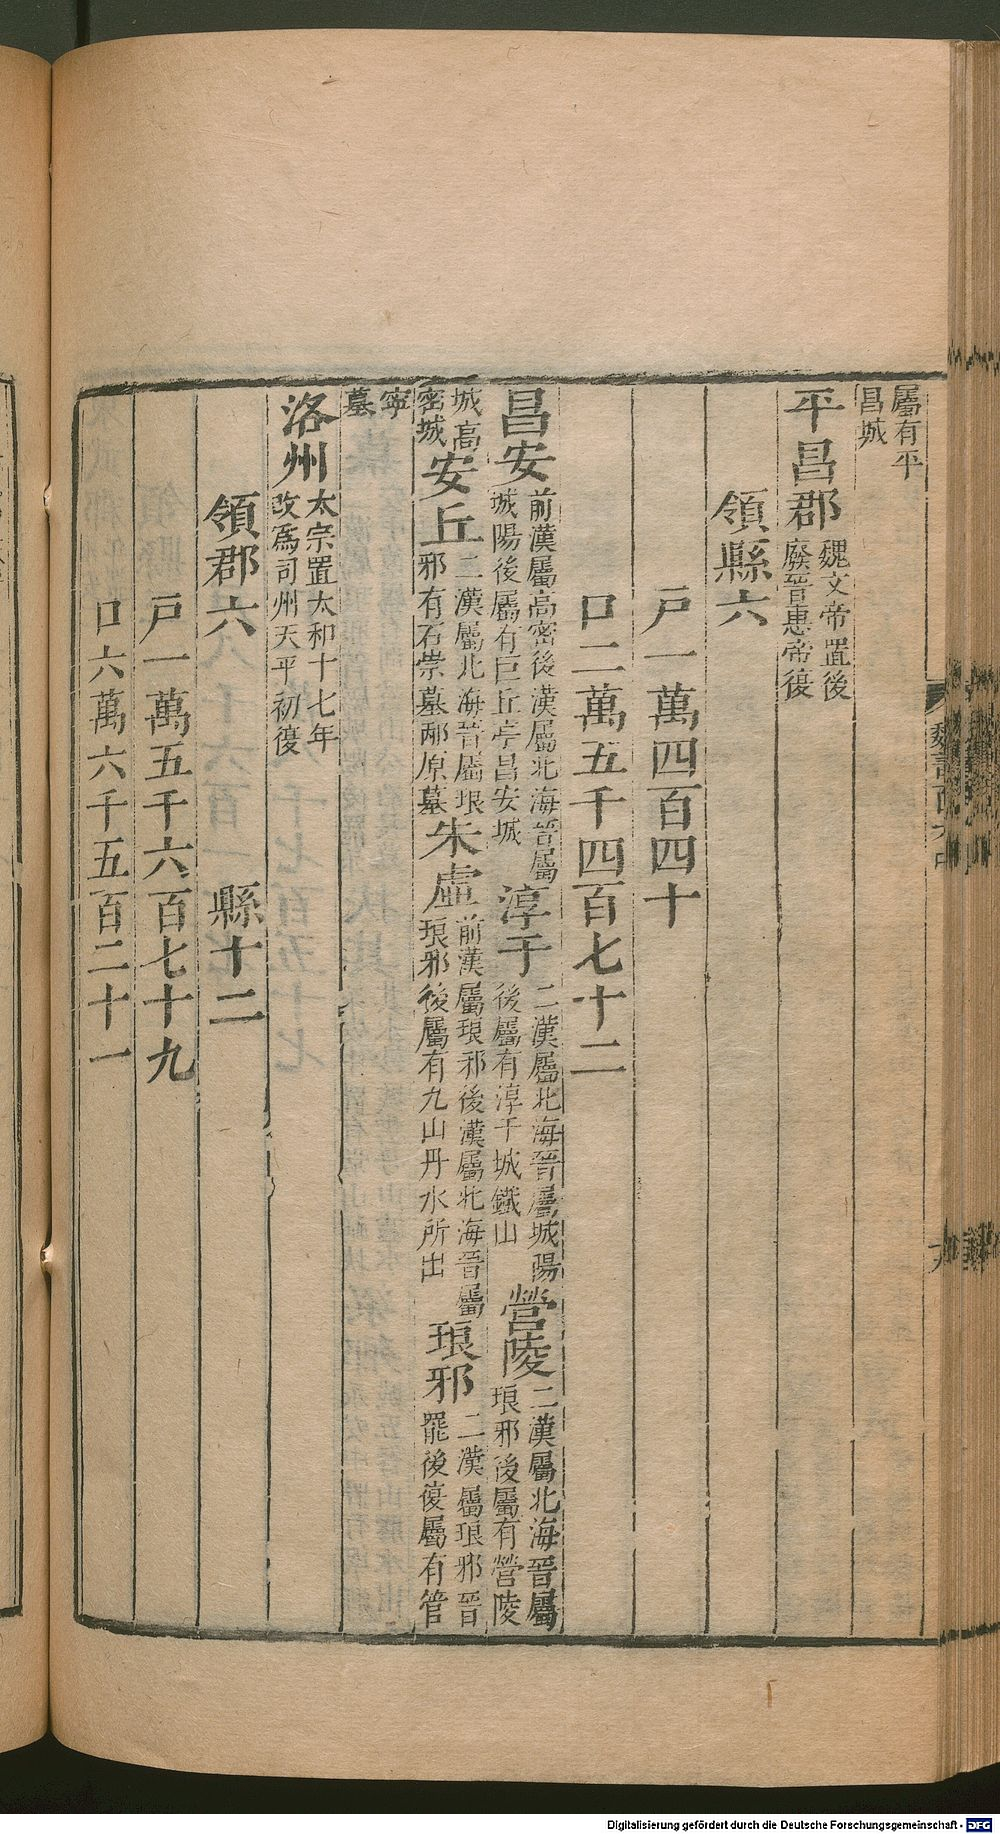 屬有平
昌城
平昌郡魏文帝置後
廢晉惠帝復
領縣六
戸一萬四百四十
口二萬五千四百七十二
昌安前漢屬高密後漢屬北海晉屬
城陽後屬有巨丘亭昌安城淳于二漢屬北海晉屬城陽
後屬有淳于城鐵山營陵二漢屬北海晉屬
琅邪後屬有營陵
城高
密城安丘二漢屬北海晉屬琅
邪有石崇墓邴原墓朱虛前漢屬琅邪後漢屬北海晉屬
琅邪後屬有九山丹水所出琅邪二漢屬琅邪晉
罷後復屬有管
寧
墓
洛州太宗置太和十七年
改爲司州天平初復
領郡六 縣十二
戸一萬五千六百七十九
口六萬六千五百二十一
Digitalisierung gefördert durch die Deutsche Forschungsgemeinschaft - DFG